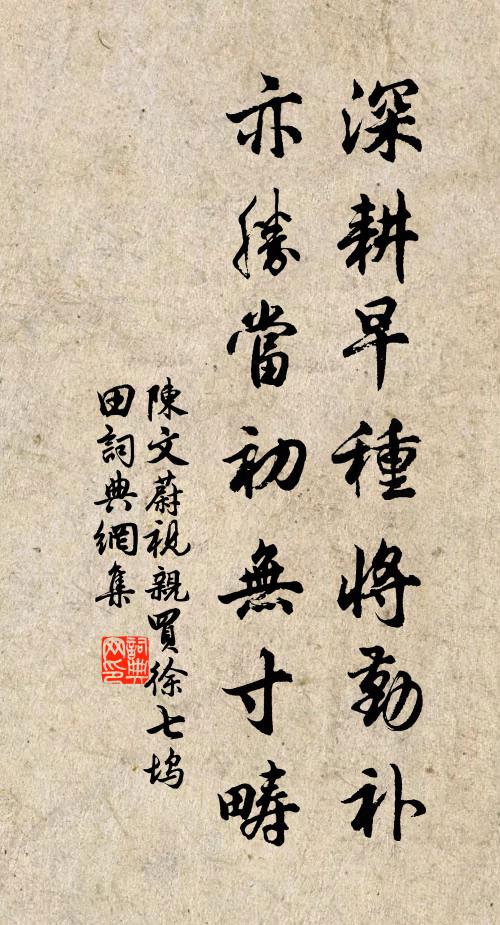 深耕早種將勤补
亦勝當初無寸疇
陳文蔚視親買徐七塢
田詞典網集
詞典
网印